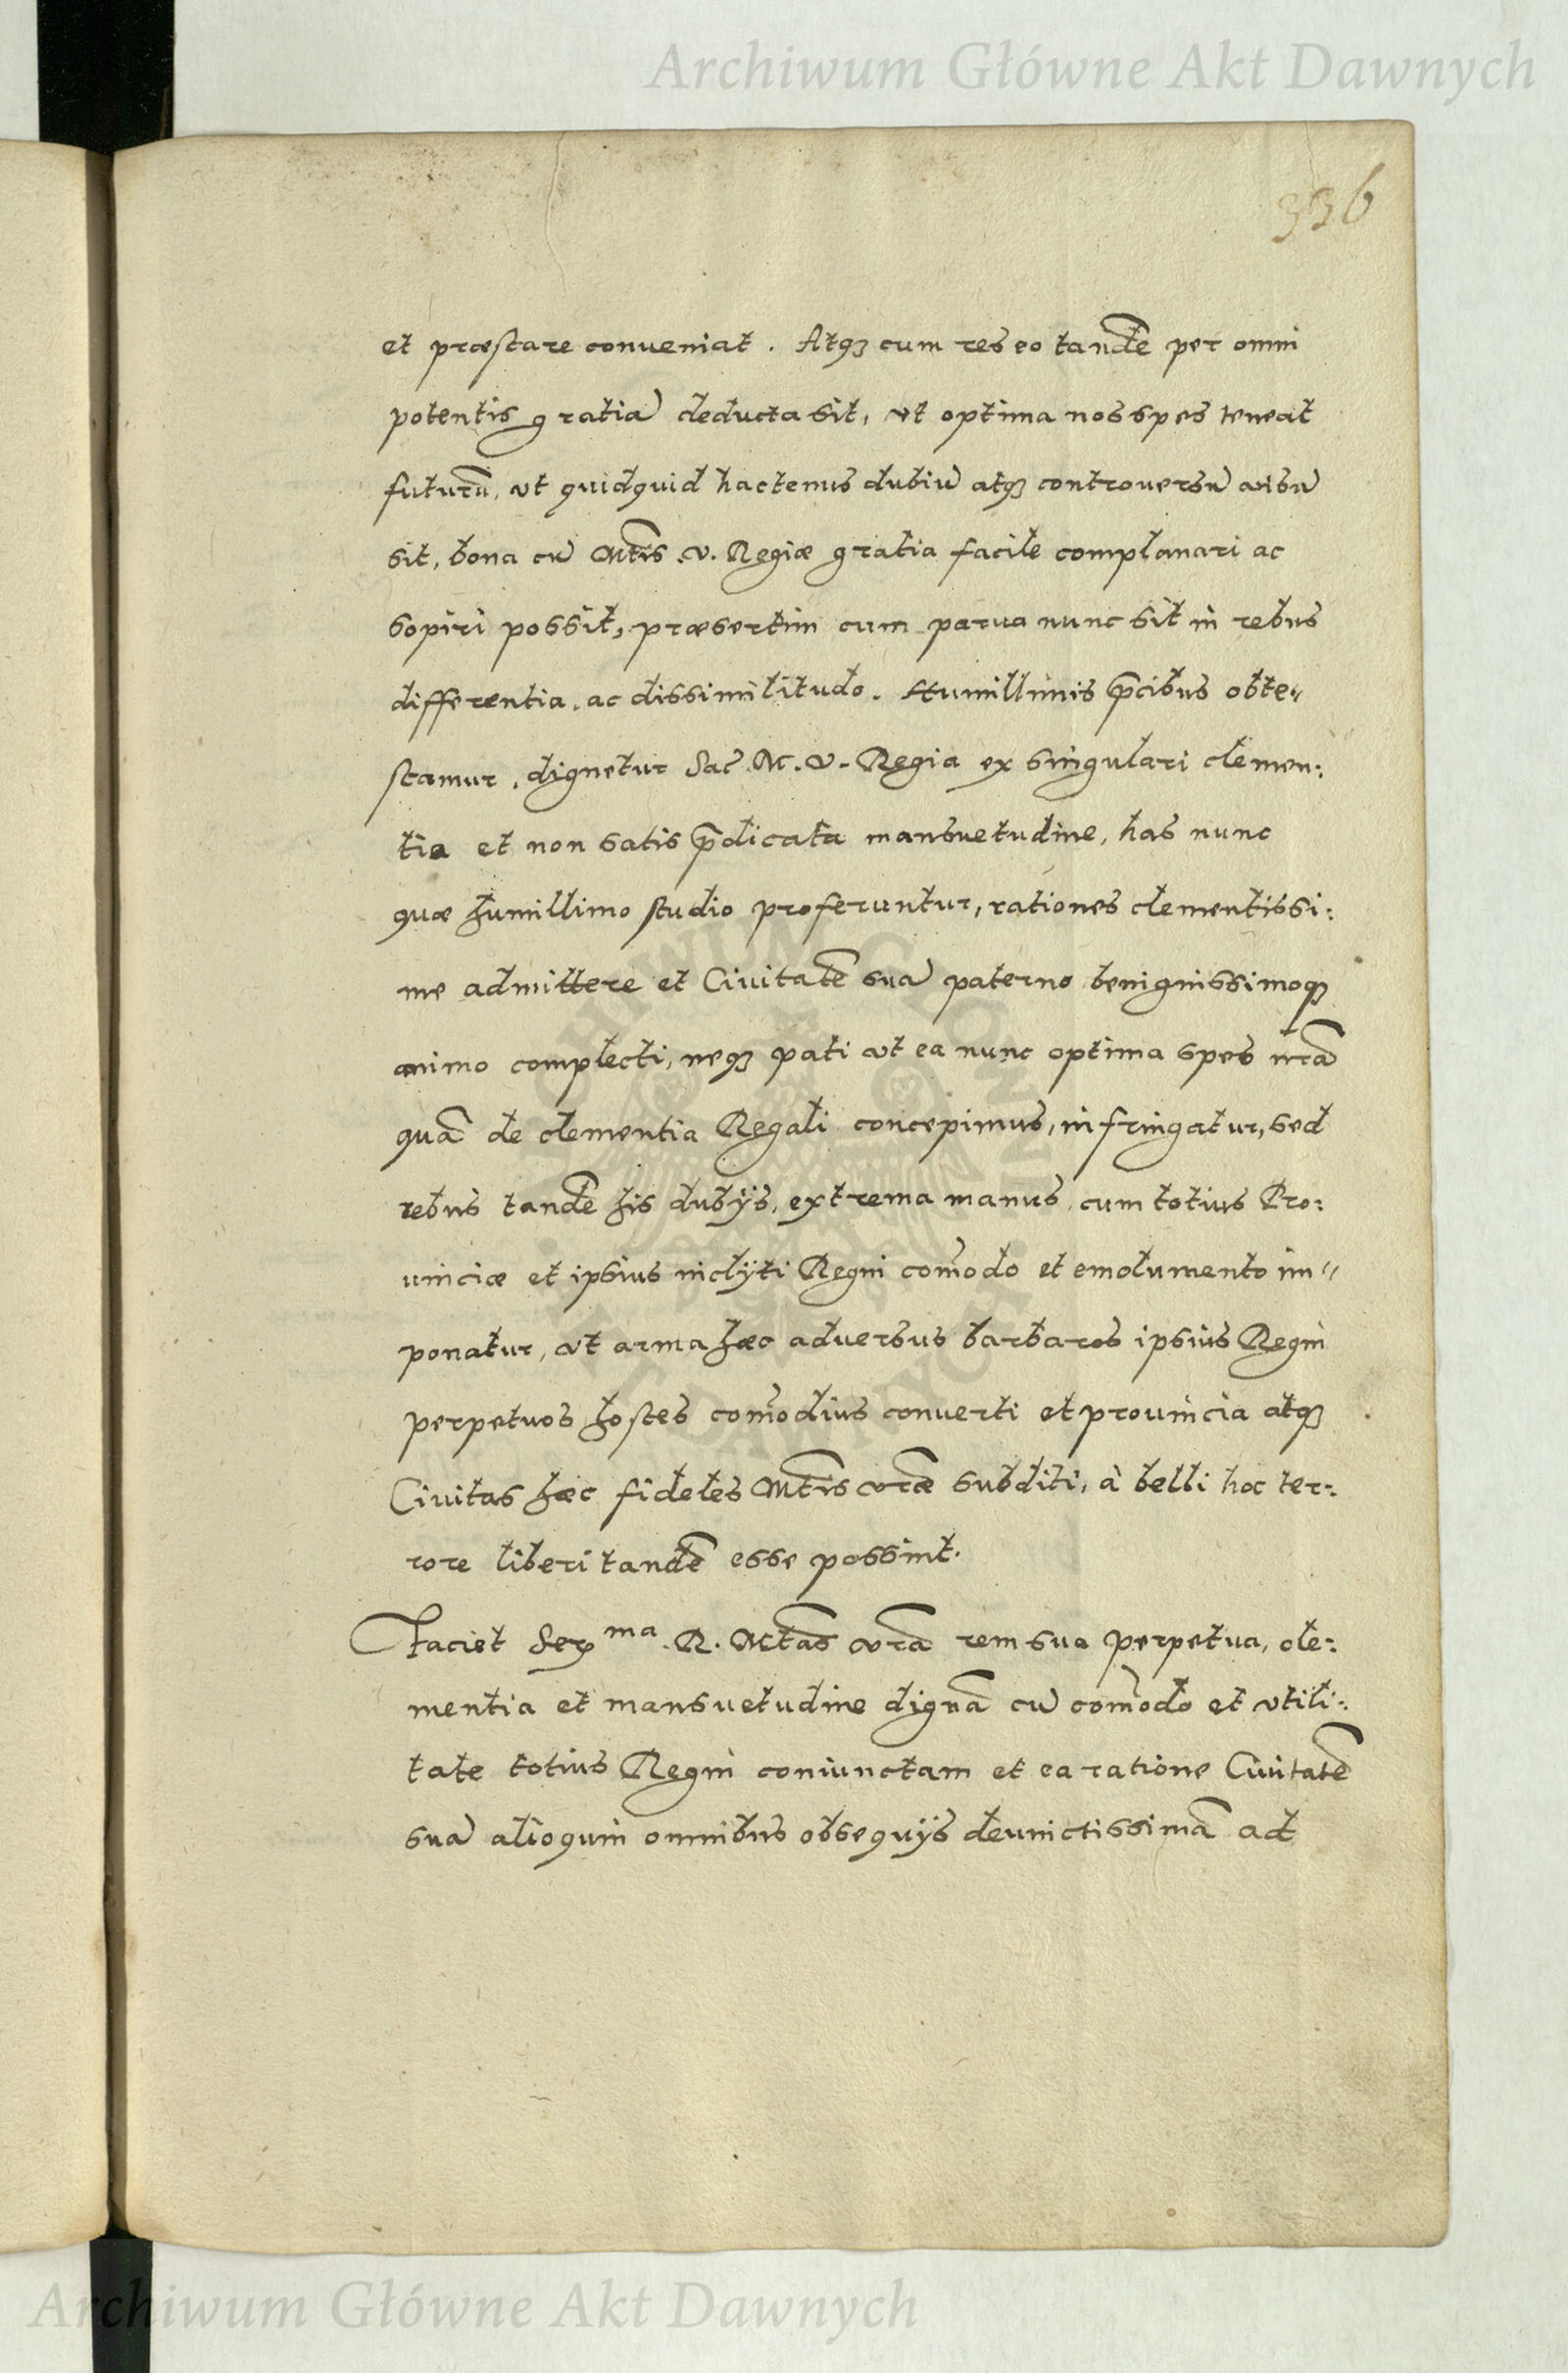 Archiwum Główne Akt Dawnych
336
et præstare conueniat. Atq₃ cum res eo tandē per omni
potentis gratiā deducta sit, vt optima nos spes teneat
futurū, vt quidquid hactenus dubiū atq₃ controuersū visū
sit, bona cū Mtis. V. Regiæ gratia facile complanari ac
sopiri possit, præsertim cum parua nunc sit in rebus
differentia, ac dissimilitudo. Humillimis p̄cibus obte„
stamur, dignetur Sac. M. V. Regia ex singulari clemen:
tia et non satis p̄dicata mansuetudine, has nunc
quæ humillimo studio proferuntur, rationes clementissi:
me admittere et Ciuitatē suā paterno benignissimoq₃
animo complecti, neq₃ pati vt ea nunc optima spes nr̄a
quā de clementia Regali concepimus, infringatur, sed
rebus tandē his dubijs, extrema manus cum totius Pro:
uinciæ et ipsius inclÿti Regni com̄odo et emolumento im„
ponatur, vt arma hæc aduersus barbaros ipsius Regni
perpetuos hostes com̄odius conuerti et prouincia atq₃
Ciuitas hæc fideles Mtis vr̄æ subditi, à belli hoc ter:
rore liberi tandē esse possint.
Faciet Serma. R. Mtas vr̄a rem sua perpetua, cle:
mentia et mansuetudine dignā cū com̄odo et vtili:
tate totius Regni coniunctam et ea ratione Ciuitatē
suā alioquin omnibus obsequÿs deuinctissimā ad
Archiwum Główne Akt Dawnych